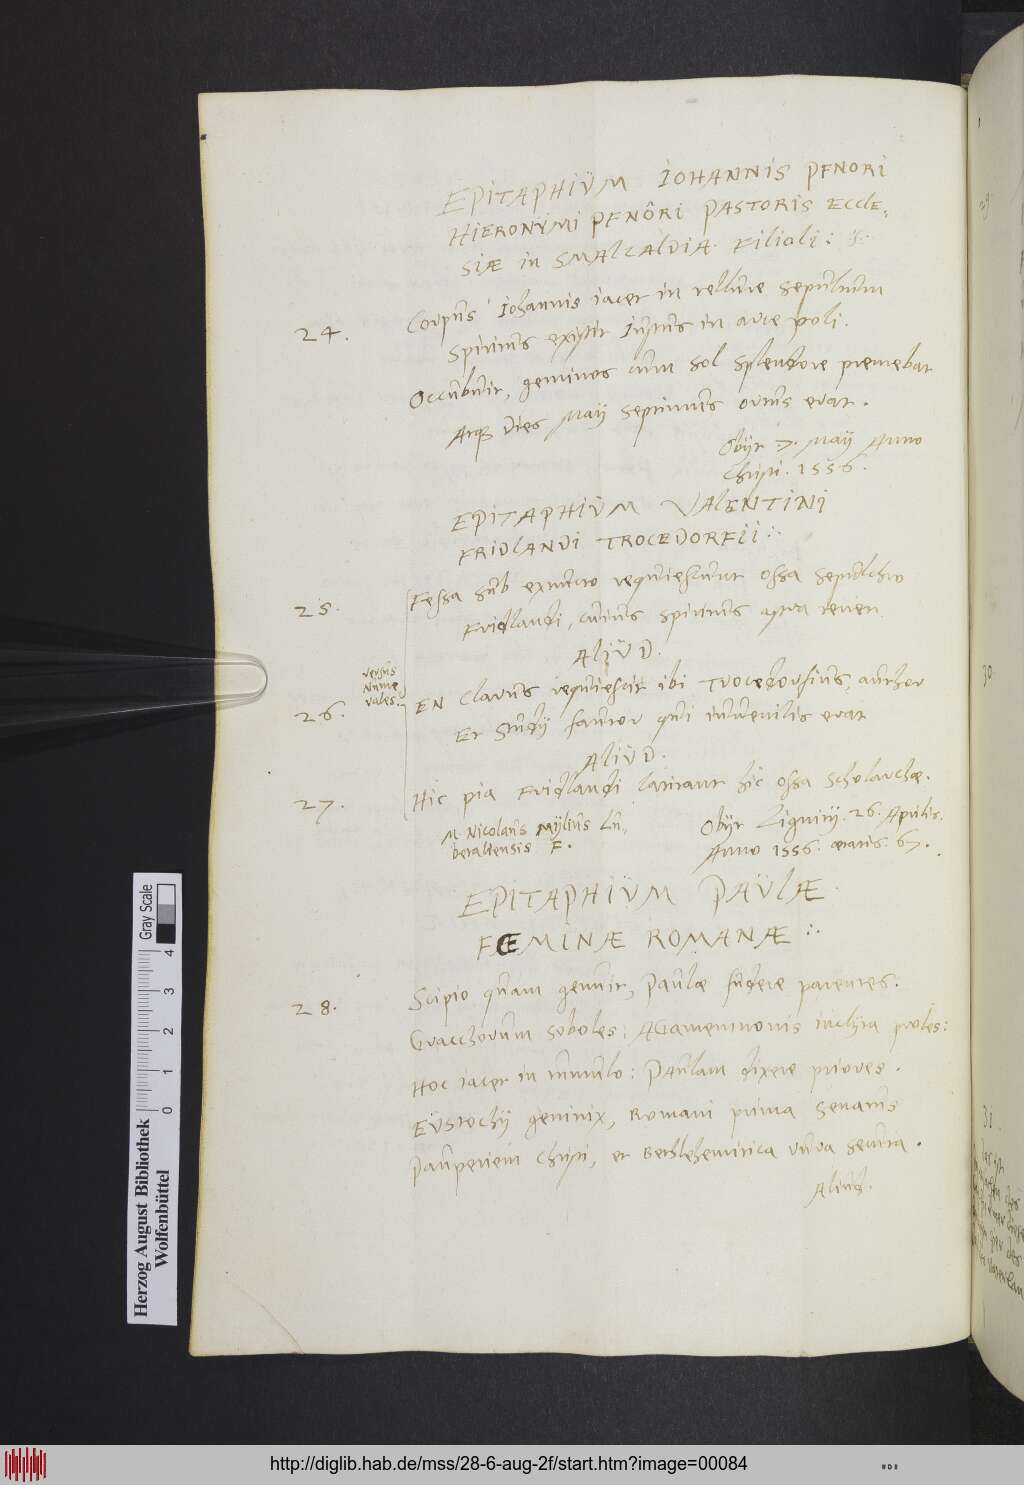 EPITAPHIUM IOHANNIS PFNORI
HIERONYMI PFNÔRI PASTORIS ECCLE,
SIÆ in SMALCALDIA. Filioli:
24. Corpus Iohannis iacet in tellure sepultum
Spiritus existit Iustus in arce poli.
Occubuit, geminos cum sol splendore premebat
Atq; dies Maij septimus ortus erat.
Obijt 7. Maij Anno
Christi. 1556.
EPITAPHIUM VALENTINI
FRIDLANDI TROCEDORFII:
25. Fessa sub extincto requiescunt ossa sepulchro
Fridlandi, cuius spiritus astra tenet
ALIUD.
versus
Nume
rales.
26. EN Clarus requiescit ibi Trocedorfius, author
Et Studij fautor qui iuvenilis erat
ALIUD.
27. Hic pia Fridlandi latitant hic ossa scholarchæ.
M. Nicolaus Mylius Lu,
beraltensis F.
Obijt Lignitij. 26. Aprilis.
Anno 1556. ætatis. 67.
EPITAPHIUM PAULÆ
FŒMINÆ ROMANÆ:
28. Scipio quam genuit, Paulæ fudere parentes:
Gracchorum soboles: AGamemnonis inclyta proles:
Hoc iacet in tumulo: Paulam dixere priores.
Eustochij genitrix, Romani prima senatus
Pauperiem Christi, et Bethlehemitica rura secuta.
Aliud.
29.
30.
31.
Herzog August Bibliothek
Wolfenbüttel
0 1 2 3 4
Gray Scale
http://diglib.hab.de/mss/28-6-aug-2f/start.htm?image=00084